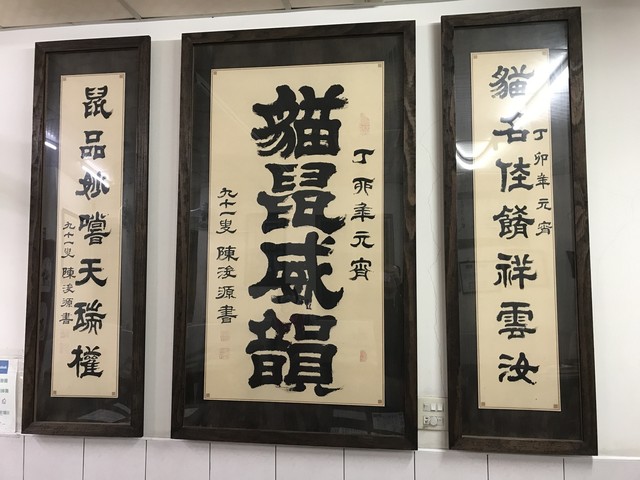 貓名佳餚祥雲汝
丁卯年元宵
丁卯年元宵
貓鼠威韻
九十一叟 陳浚源書
鼠品妙嚐天瑞權
九十一叟 陳浚源書